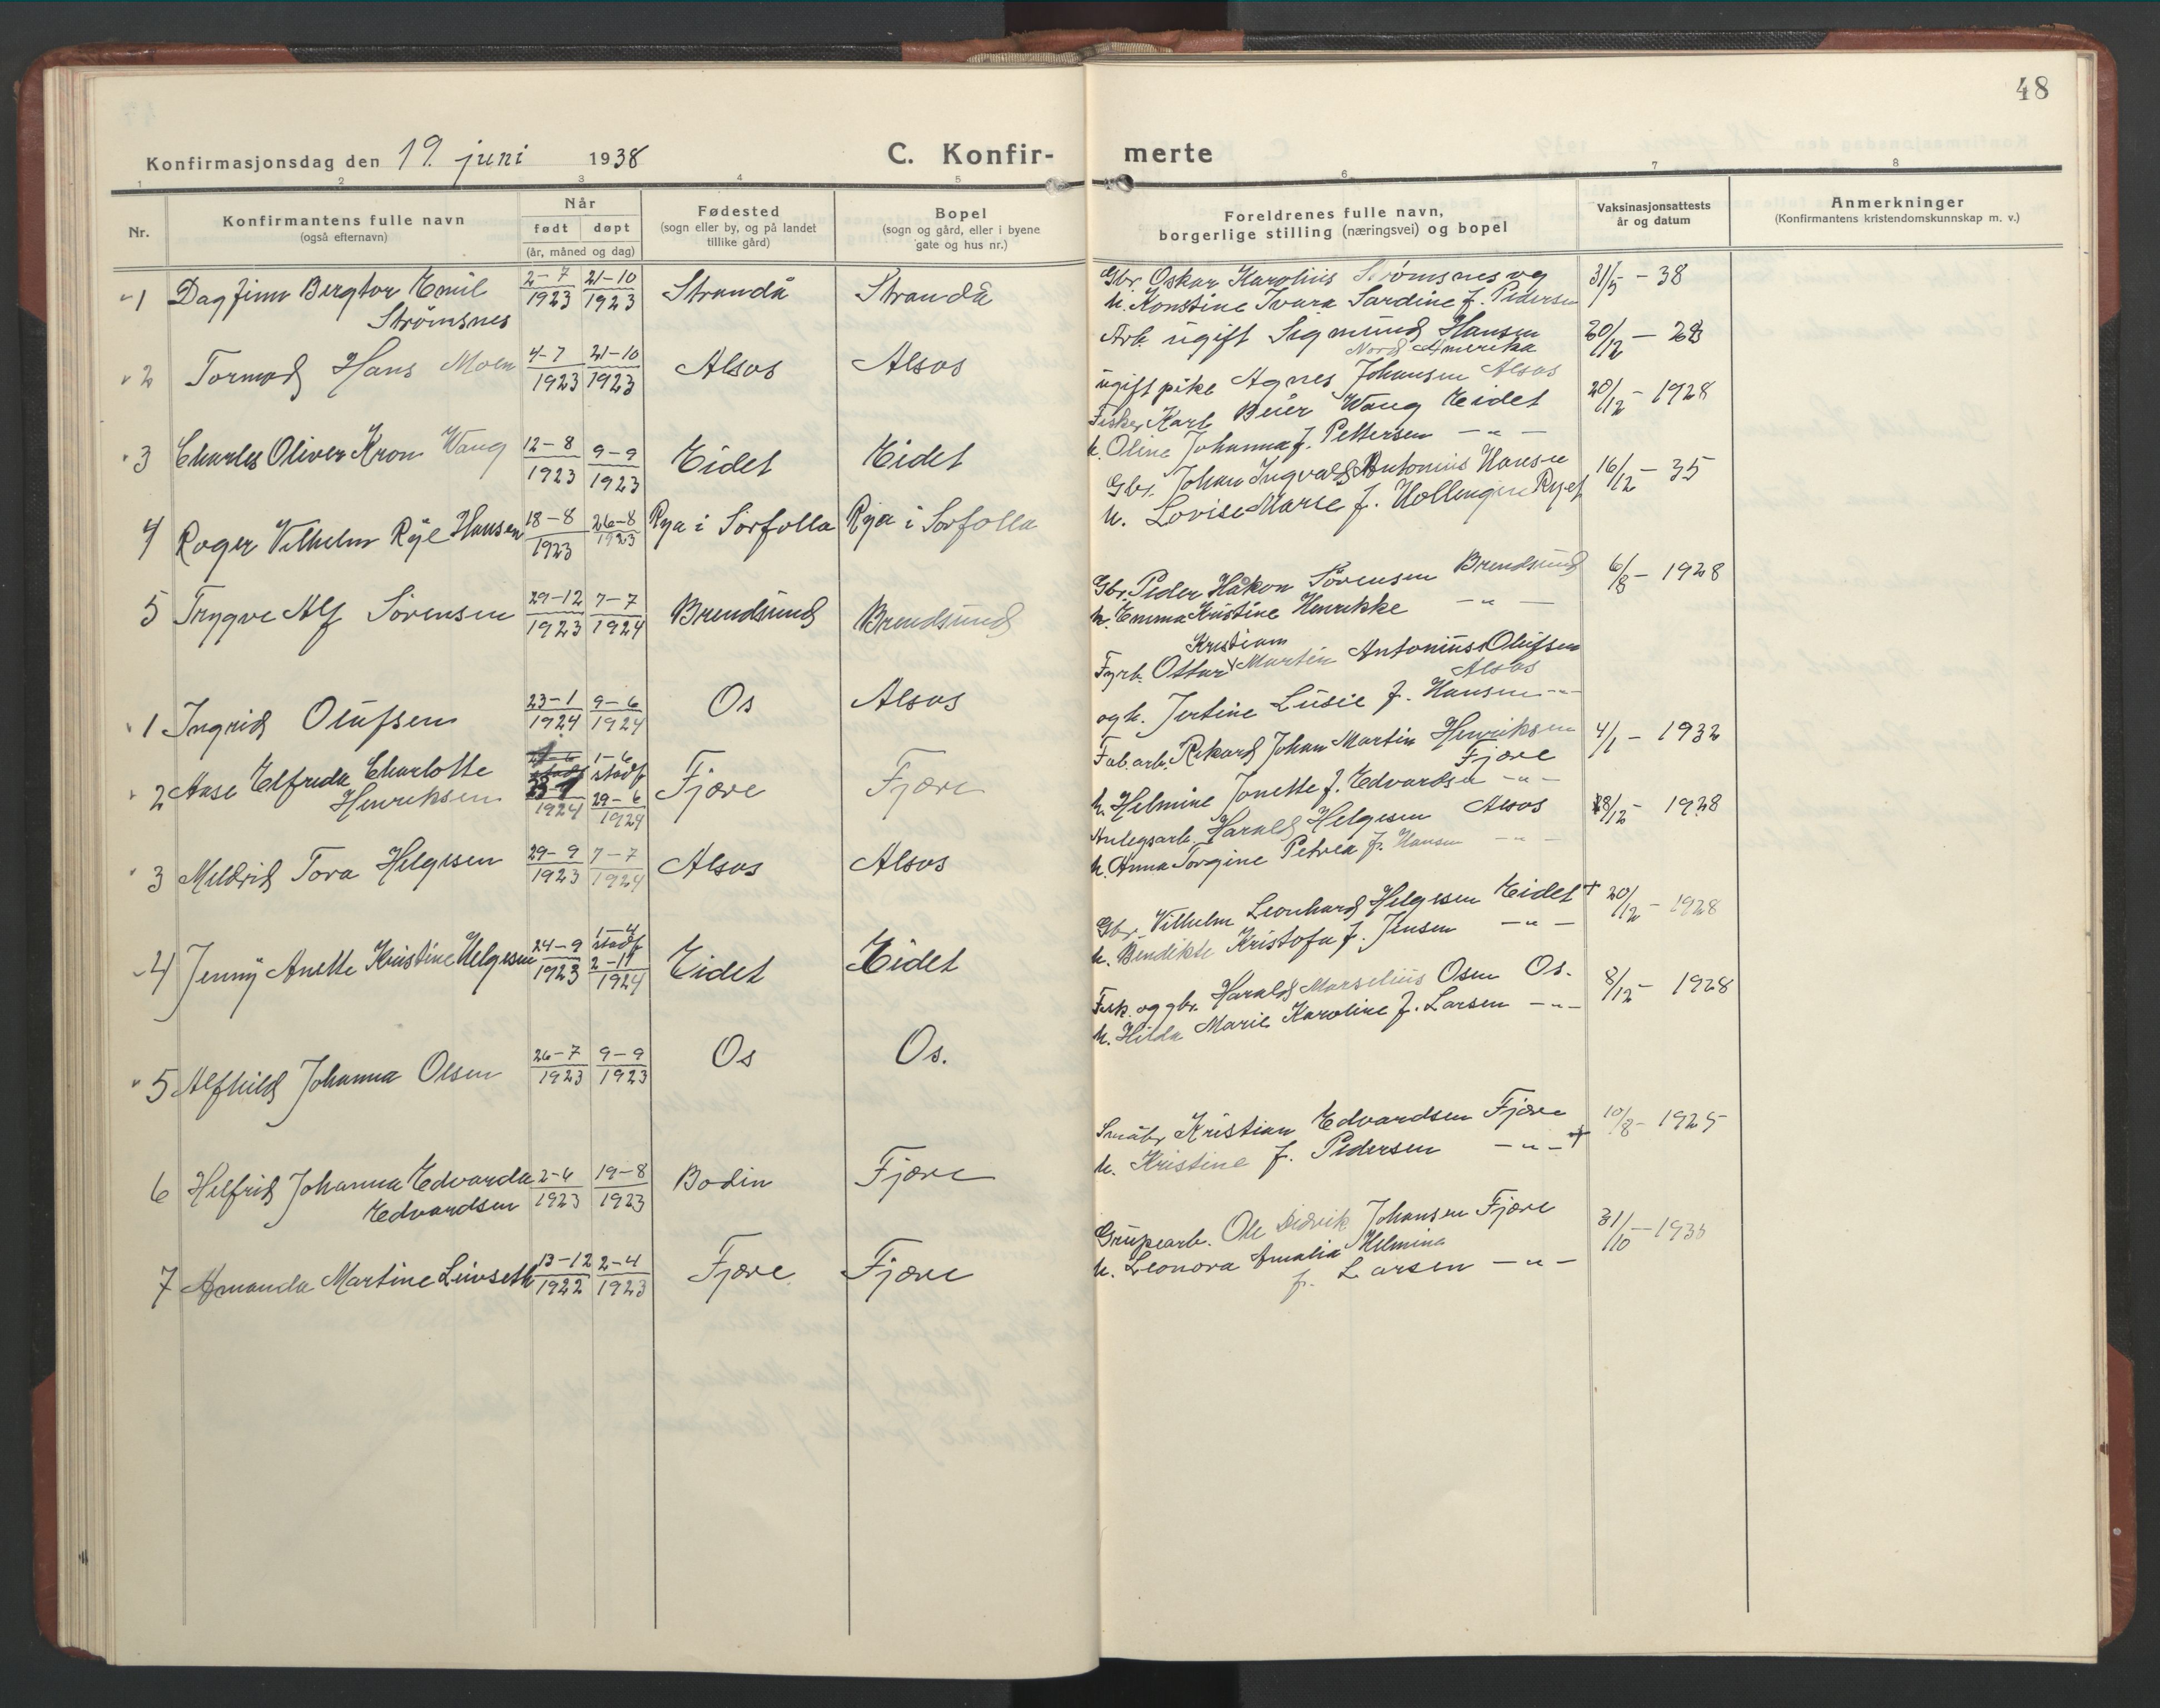 48
Konfirmasjonsdag den 19. juni 1938
C. Konfir-
merte
1 2 3 4 5 6 7 8
Nr.
Konfirmantens fulle navn
(også efternavn)
Når
født døpt
(år, måned og dag)
Fødested
(sogn eller by, og på landet
tillike gård)
Bopel
(sogn og gård, eller i byene
gate og hus nr.)
Foreldrenes fulle navn,
borgerlige stilling (næringsvei) og bopel
Vaksinasjonsattests
år og datum
Anmerkninger
(Konfirmantens kristendomskunnskap m. v.)
1 Dagfinn Bergtor Emil
Strømsnes
2-7 1923 21-10 1923 Strandå Strandå
Gbr. Oskar Karolius Strømsnes og
h. Konstine Ivara Sardine f. Pedersen
31/5 - 38
2 Tormod Hans Moen 4-7 1923 21-10 1923 Alsos Alsos
Arb. ugift Sigmund Hansen
Nord Amerika
ugift pike Agnes Johansen Alsos
20/12 - 28
3 Charles Oliver Kron Wang 12-8 1923 9-9 1923 Eidet Eidet
Fisker Karl Beier Wang Eidet
h. Oline Johanna f. Pettersen - " -
20/12 - 1928
4 Roger Vilhelm Rye Hansen 18-8 1923 26-8 1923 Rya i Sørfolla Rya i Sørfolla
Gbr. Johan Ingvald Antonius Hansen
h. Lovise Marie f.
16/12 - 35
5 Trygve Alf Sørensen 29-12 1923 7-7 1924 Brendsund Brendsund
Gbr. Peder Håkon Sørensen Brendsund
h. Emma Kristine Henrikke - " -
6/8 - 1928
1 Ingrid Olufsen 23-1 1924 9-6 1924 Os Alsos
Kristian
Fyrb. Ottar Martin Antonius Olufsen
Alsos
og h. Jertine Lusie f. Hansen - " -
2 Aase Elfrida Charlotte
Henriksen
1924 1-6 stadf 29-6 1924 Fjære Fjære
Fab.arb. Rikard Johan Martin Henriksen
Fjære
h. Helmine Jonette f. Edvardsen - " -
4/1 - 1932
3 Meldrid Tora Helgesen 29-9 1923 7-7 1924 Alsos Alsos
Anlegsarb. Harald Helgesen Alsos
h. Anna Torgine Petrea f. Hansen - " -
8/12 - 1928
4 Jenny Anette Kristine Helgesen 24-9 1923 1-4 stadf 2-11 1924 Eidet Eidet
Gbr. Vilhelm Leonhard Helgesen Eidet +
h. Bendikte Kristofa f. Jensen - " -
20/12 - 1928
5 Alfhild Johanna Olsen 26-7 1923 9-9 1923 Os Os.
Fisk. og gbr. Harald Marselius Osen Os.
h. Hilda Marie Karoline f. Larsen - " -
8/12 - 1928
6 Helfrid Johanna Edvarda
Edvardsen
2-6 1923 19-8 1923 Bodin Fjære
Småbr. Kristian Edvardsen Fjære
h. Kristine f. Pedersen - " - +
10/8 - 1925
7 Amanda Martine Livseth 13-12 1922 2-4 1923 Fjære Fjære
Grupearb. Ole Didrik Johansen Fjære
h. Leonora Amalia Helmine
f. Larsen - " -
31/10 - 1935